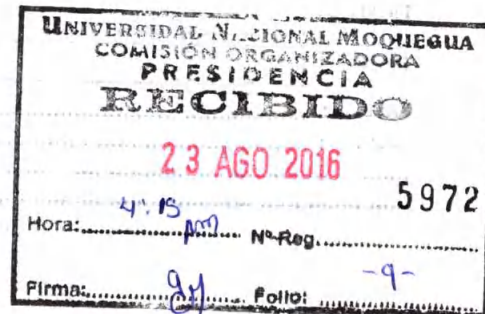 UNIVERSIDAL NACIONAL MOQUEGUA
COMISIÓN ORGANIZADORA
PRESIDENCIA
RECIBIDO
23 AGO 2016
5972
Hora: 4:15 pm Nº Reg.
Firma: Folio: -9-